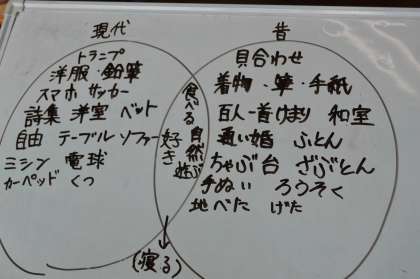 現代
トランプ
洋服・鉛筆
スマホ サッカー
詩集 洋室 ベット
自由 テーブル ソファー
ミシン 電球
カーペッド くつ
食べる 自然
好き 遊ぶ
(寝る)
昔
貝合わせ
着物・筆・手紙
百人一首 けまり 和室
通い婚 ふとん
ちゃぶ台 ざぶとん
手ぬい ろうそく
地べた げた